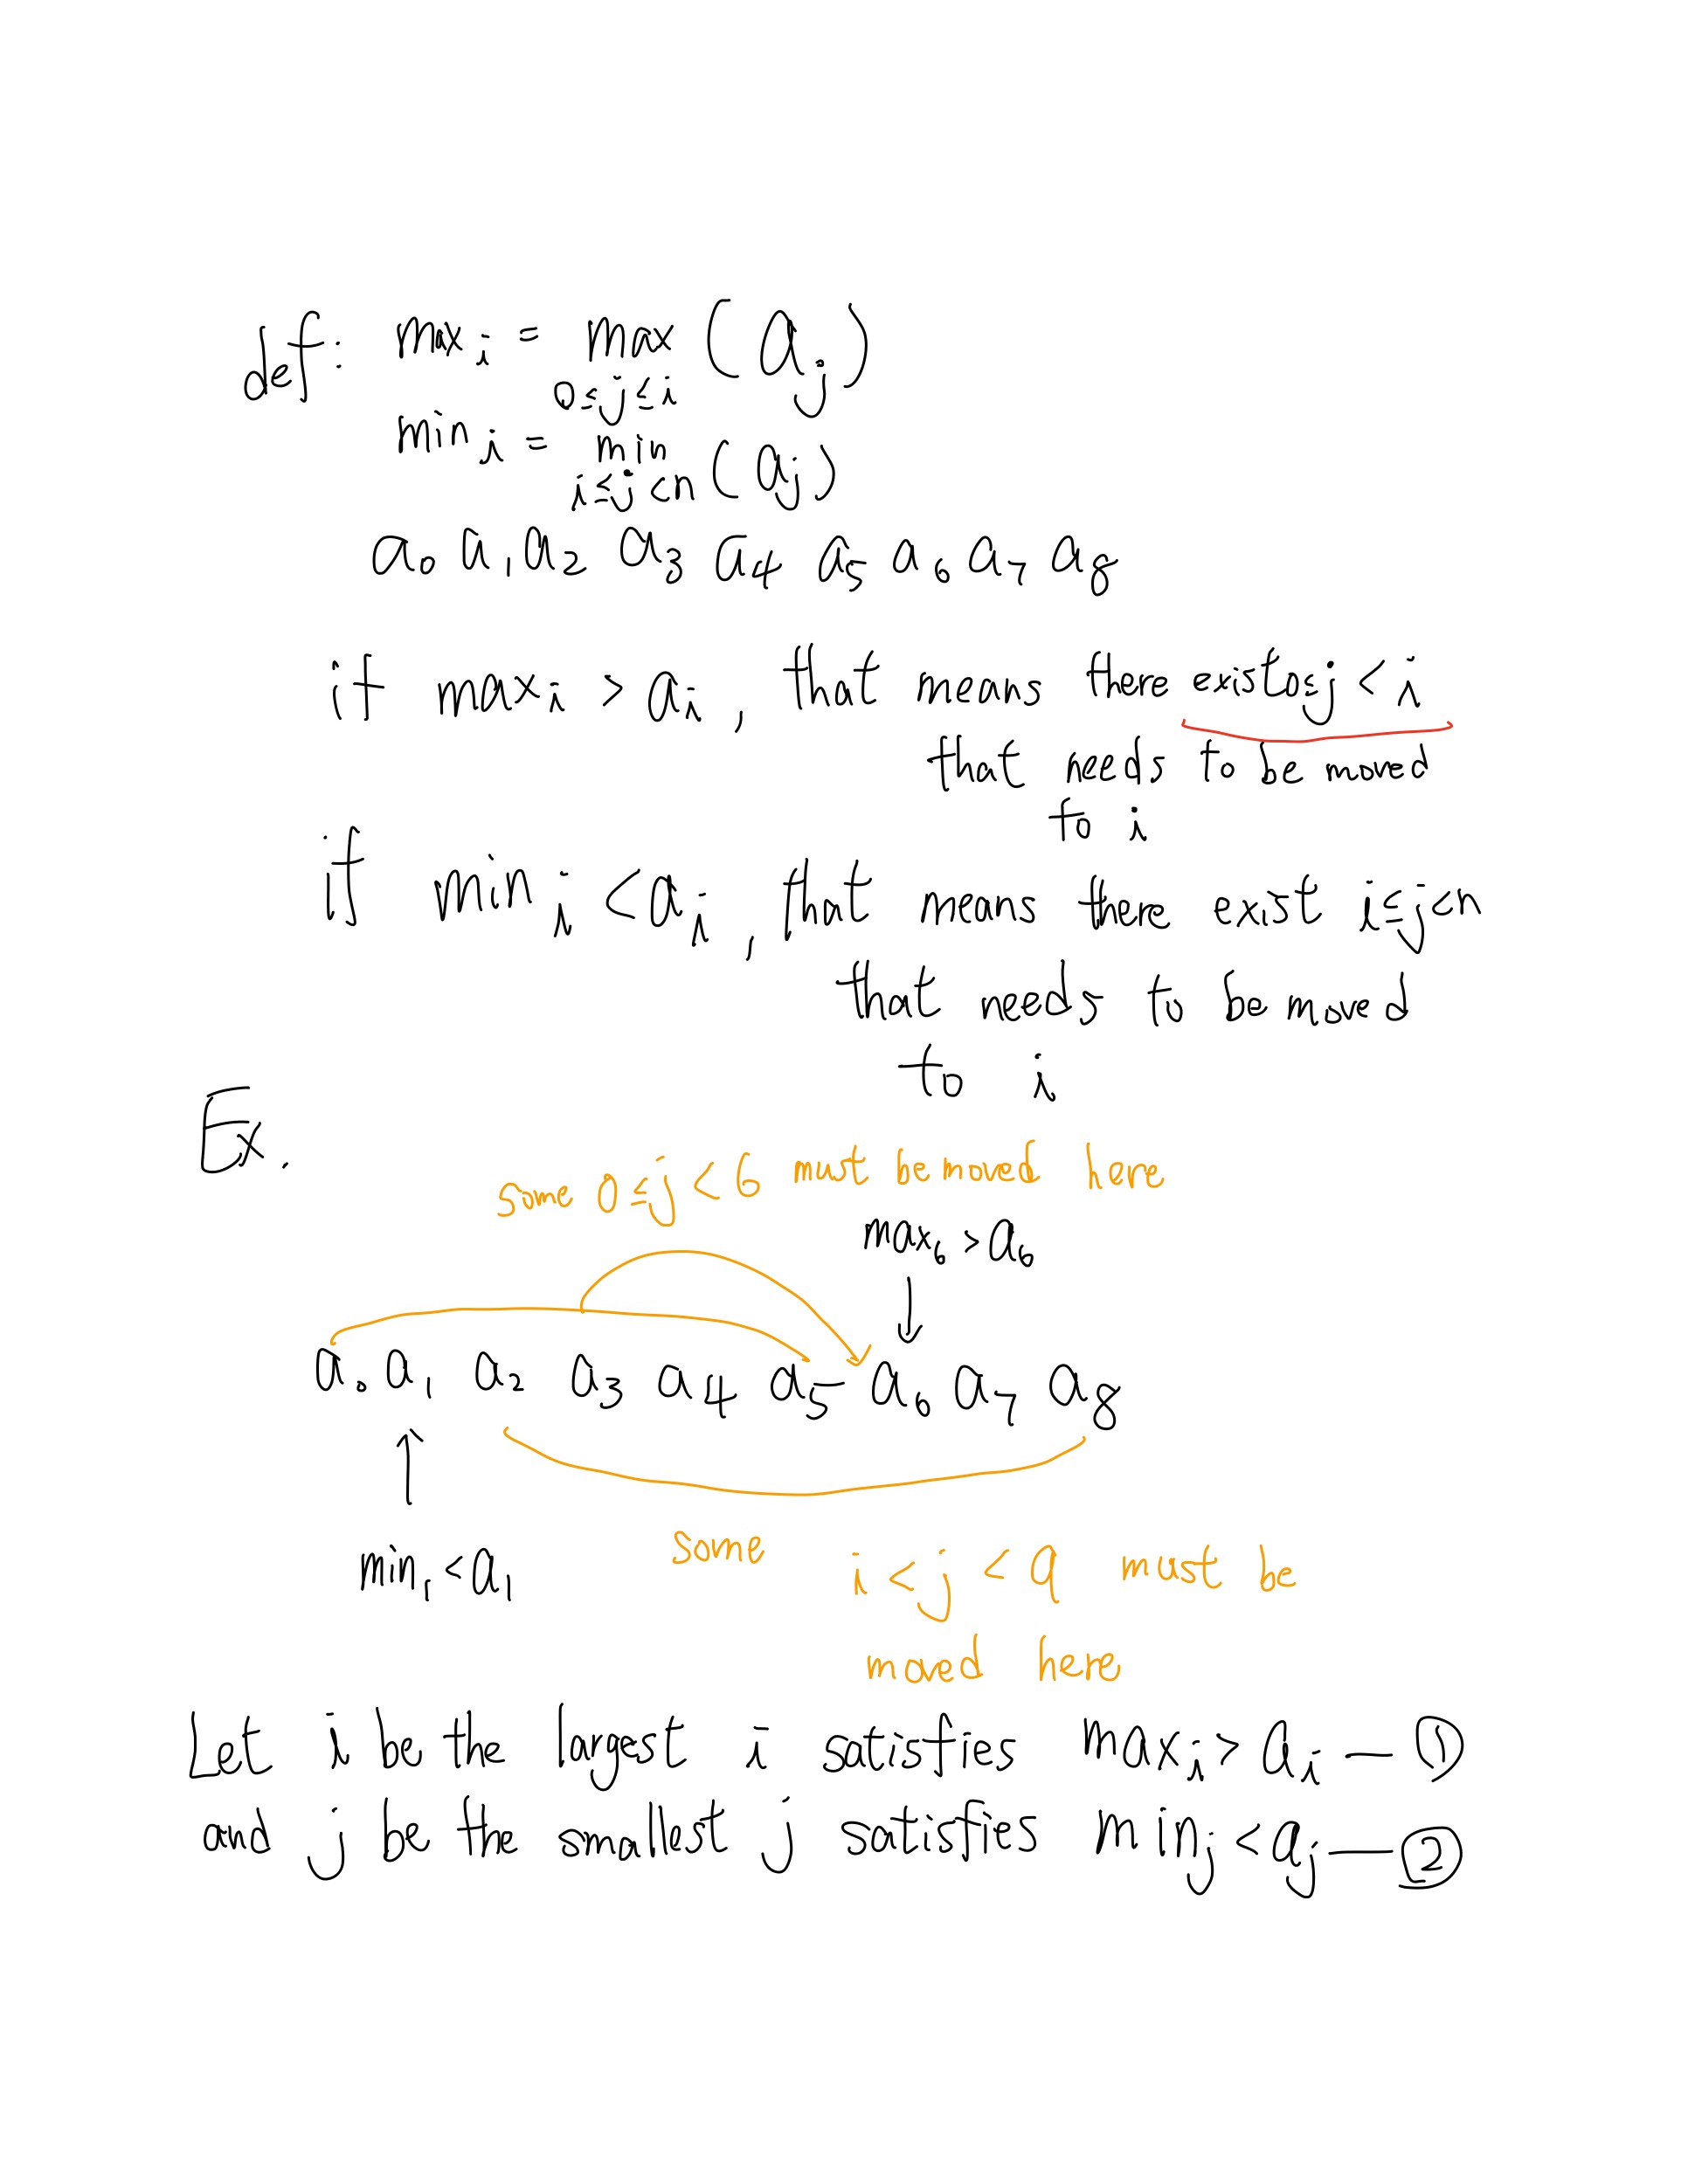 def: max_i = max (a_j)
0≤j≤i
min_i = min (a_j)
i≤j<n
a_0 a_1 a_2 a_3 a_4 a_5 a_6 a_7 a_8
if max_i > a_i, that means there exist 0≤j < i
that needs to be moved
to i
if min_i < a_i, that means there exist i≤j<n
that needs to be moved
to i
Ex.
some 0≤j<6 must be moved here
max_6 > a_6
a_0 a_1 a_2 a_3 a_4 a_5 a_6 a_7 a_8
min_1 < a_1
some i<j<9 must be
moved here
Let i be the largest i satisfies max_i > a_i — ①
and j be the smallest j satisfies min_j < a_j — ②